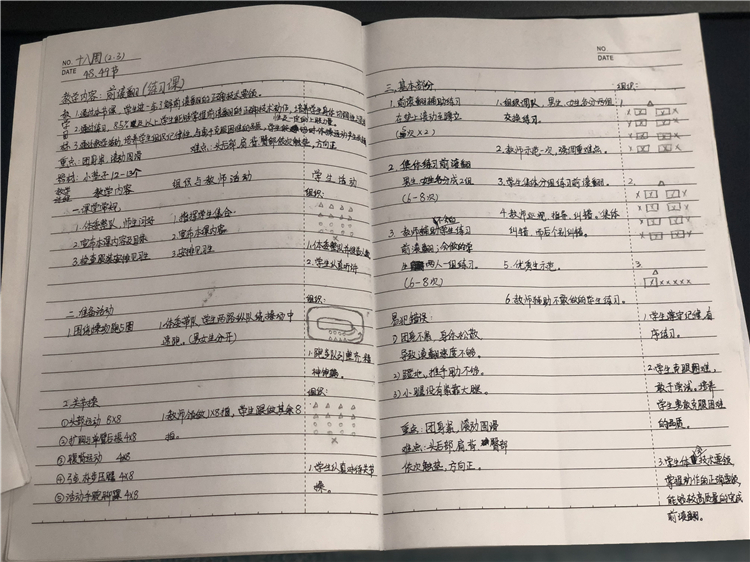 NO. 十八周(2-3)
DATE 48.49节
教学内容：前滚翻(练习课)
重点：团身紧，滚动圆滑 难点：头后部.肩.背.臀部依次触垫，方向正
器材：小垫子12-13个
教学 教学内容 组织与教师活动 学生活动
一.课堂常规 组织：
1.体委整队，师生问好 1.指挥学生集合
2.宣布本课内容及目标 2.宣布本课内容
3.检查服装安排见习生 3.安排见习生
1.体委整队并报告人数
2.学生认真听讲
二.准备活动 组织：
1.围绕操场跑5圈 1.体委带队，学生两路纵队绕操场中
速跑。(男女生分开)
1.跑步队列整齐，精
神饱满。
2.关节操 组织：
①头部运动 8x8 1.教师领做1x8拍，学生跟做其余8
②扩胸与单臂后振 4x8 拍。
③腰背运动 4x8
④弓步.侧压腿 4x8
⑤活动手腕脚踝 4x8
1.学生认真对待关节
操。
NO
DATE
三.基本部分 组织：
1.前滚翻辅助练习 1.组织调队，男生、女生各分两组 1.
在垫上滚动至蹲立 交换练习。
2.教师示范一次，强调重难点。
2.集体练习前滚翻 3.学生集体分组练习前滚翻。 2.
男生.女生各分成2组
(6-8次) 4.教师巡视、指导、纠错。集体
纠错，而后个别纠错。
3.教师辅助学生练习
前滚翻；会做的学
生两人一组练习。 5.优秀生示范。 3.
(6-8次)
6.教师辅助不能做的学生练习。
易犯错误：
1)团身不紧，身体松散，
导致滚翻速度不够。
2)蹬地、推手用力不够。
3)小腿没有紧靠大腿。
1.学生遵守纪律，有
序练习。
2.学生克服困难，
敢于尝试，培养
学生勇敢克服困难
的品质。
重点：团身紧，滚动圆滑
难点：头后部.肩.背.臀部
依次触垫，方向正。
3.学生体会技术要领，
掌握动作的正确要领，
能够较高质量的完成
前滚翻。